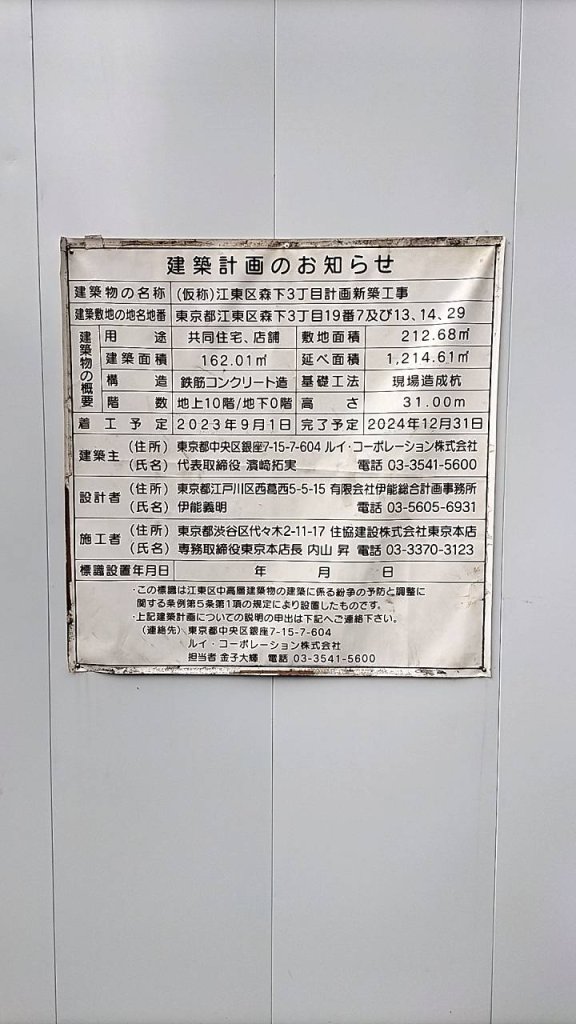 建築計画のお知らせ
建築物の名称 (仮称)江東区森下3丁目計画新築工事
建築敷地の地名地番 東京都江東区森下3丁目19番7及び13、14、29
建築物の概要
用途 共同住宅、店舗 敷地面積 212.68㎡
建築面積 162.01㎡ 延べ面積 1,214.61㎡
構造 鉄筋コンクリート造 基礎工法 現場造成杭
階数 地上10階/地下0階 高さ 31.00m
着工予定 2023年9月1日 完了予定 2024年12月31日
建築主 (住所) 東京都中央区銀座7-15-7-604 ルイ・コーポレーション株式会社
(氏名) 代表取締役 濵﨑拓実 電話 03-3541-5600
設計者 (住所) 東京都江戸川区西葛西5-5-15 有限会社伊能総合計画事務所
(氏名) 伊能義明 電話 03-5605-6931
施工者 (住所) 東京都渋谷区代々木2-11-17 住協建設株式会社東京本店
(氏名) 専務取締役東京本店長 内山 昇 電話 03-3370-3123
標識設置年月日 年 月 日
・この標識は江東区中高層建築物の建築に係る紛争の予防と調整に
関する条例第5条第1項の規定により設置したものです。
・上記建築計画についての説明の申出は下記へご連絡下さい。
(連絡先) 東京都中央区銀座7-15-7-604
ルイ・コーポレーション株式会社
担当者 金子大輝 電話 03-3541-5600